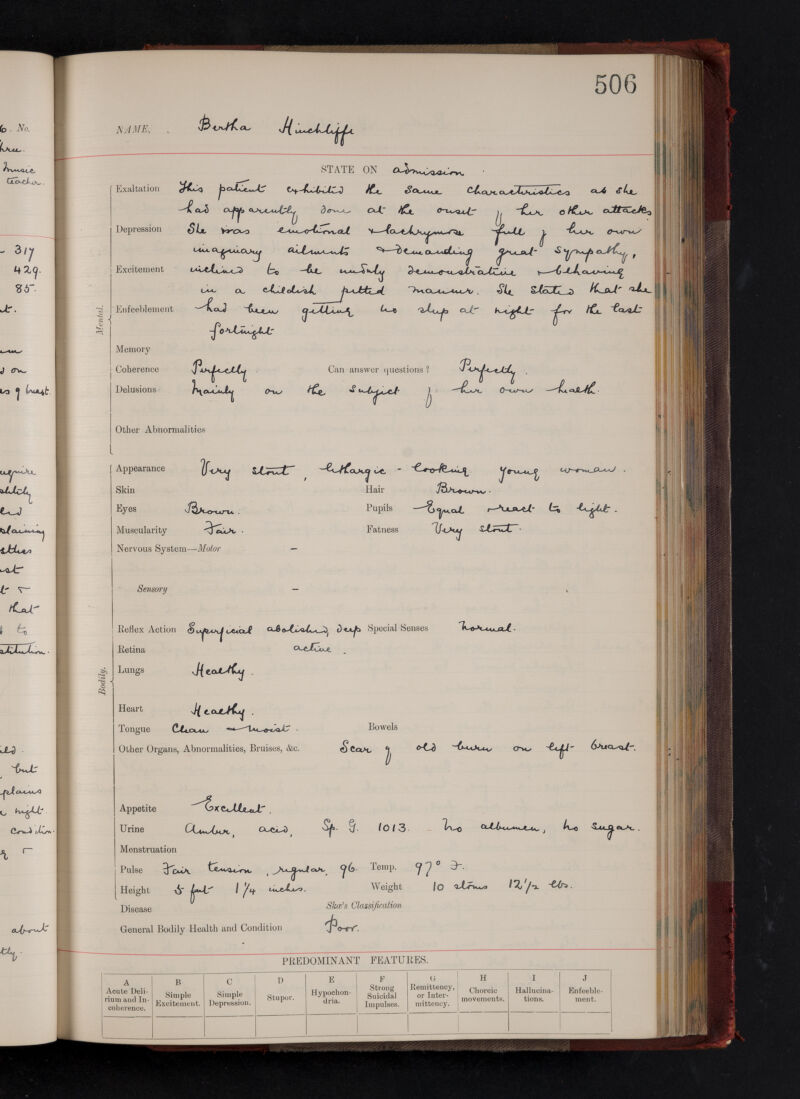 506
No.
music
teacher.
317
429.
85.
on
breast.
that
to
but
night
about
NAME, . Bertha Hinchliffe
STATE ON admission .
Mental.
Exaltation This patient exhibited the same characteristics as she
had apparently done at the onset of her other attacks
Depression She was emotional & lachrymose full of her own
imaginary ailments & demanding great sympathy,
Excitement inclined to be unduly demonstrative & behaving
in a childish petted manner. She stated that she
Enfeeblement had been getting no sleep at night for the last
fortnight
Memory
Coherence Perfectly Can answer questions? Perfectly.
Delusions Mainly on the subject of her own health.
Other Abnormalities
Bodily.
Appearance Very stout, lethargic-looking young woman.
Skin Hair Brown.
Eyes Brown. Pupils Equal & react to light.
Muscularity Fair. Fatness Very stout.
Nervous System—Motor –
Sensory –
Reflex Action Superficial abolished, deep Special Senses Normal.
Retina active.
Lungs Healthy.
Heart Healthy.
Tongue Clean & moist. Bowels
Other Organs, Abnormalities, Bruises, &c. Scar of old burn on left breast.
Appetite Excellent.
Urine Amber, acid, Sp. G. 1013. No albumen, no sugar.
Menstruation
Pulse Fair tension, regular, 96. Temp. 97° F.
Height 5 feet 1 1/4 inches. Weight 10 stones 12 1/2 lbs.
Disease Skae's Classification
General Bodily Health and Condition Poor.
PREDOMINANT FEATURES.
A B C D E F G H I J
Acute Deli- Simple Simple Stupor. Hypochon- Strong Remittency, Choreic Hallucina- Enfeeble-
rium and In- Excitement. Depression. dria. Suicidal or Inter- movements. tions. ment.
coherence. Impulses. mittency.